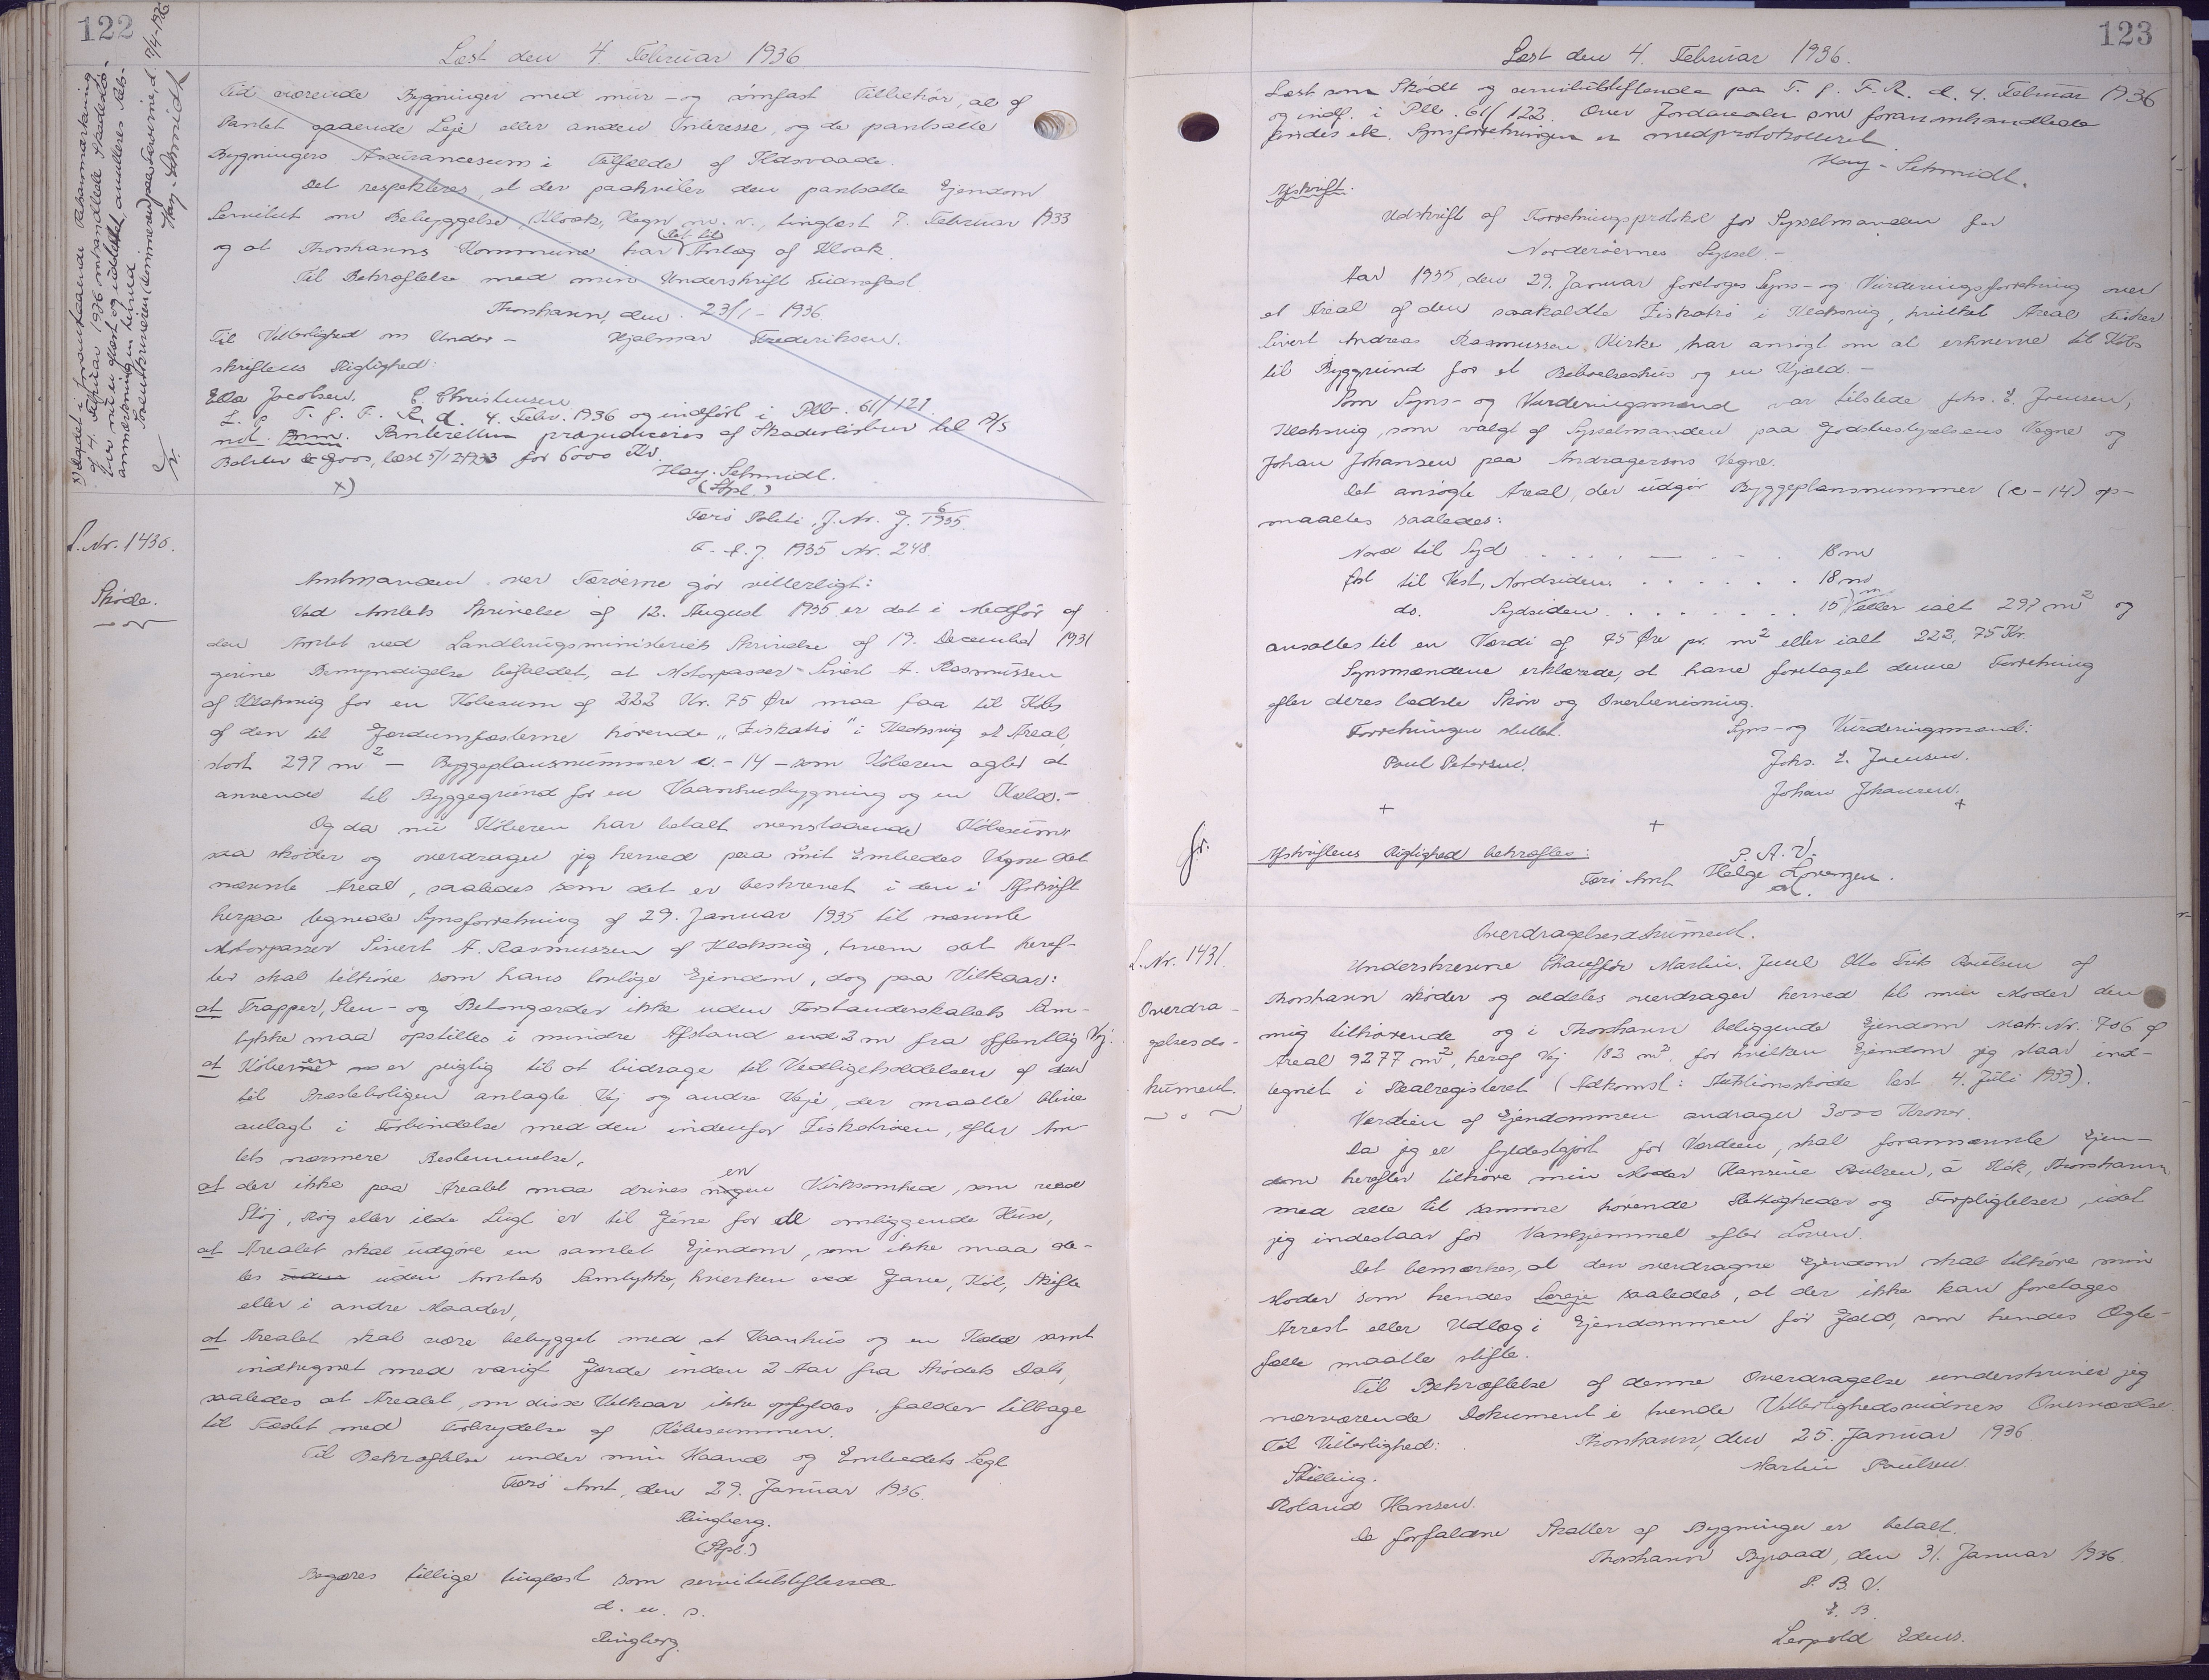 122
Læst den 4. Februar 1936
Til værende Bygninger med mur- og sømfast Tilbehør, al af
Pantet gaaende Leje eller anden Interesse, og de pantsatte
Bygningers Assurancesum i Tilfælde af Ildsvaade.
Det respekteres, at der paahviler den pantsatte Ejendom
Servitut om Bebyggelse, Kloak, Hegn m. v., tinglæst 7. Februar 1933
og at Thorshavns Kommune har Ret til Anlæg af Kloak.
Til Bekræftelse med min Underskrift
Thorshavn, den 23/1 - 1936.
Til Vitterlighed om Under- Hjalmar Frederiksen.
skriftens Rigtighed:
Ella Jacobsen. C. Christensen
L. s T. f. F. R. d. 4. Febr. 1936 og indført i Plb. 61/121
not. Anm. Panteretten præjudiceres af Skadesløsbrev til A/S
for 6000 Kr.
Kay-Schmidt.
(Stpl.)
x)
x) Slettet i foranstaaende
af 4. Februar 1936 omhandlede Skadesløs-
brev nu er aflæst og udslettet, annulleres Ret-
anmærkningen herved.
Sorenskriveren (Dommeren) paa Færøerne, d. 7/4-1936
Kay-Schmidt
L. Nr. 1430.
Skøde.
Færø Politi, J. Nr. J. 6/1935.
F. A. J. 1935 Nr. 248.
Amtmanden over Færøerne gør vitterligt:
Ved Amtets Skrivelse af 12. August 1935 er det i Medfør af
den Amtet ved Landbrugsministeriets Skrivelse af 19. December 1931
givne Bemyndigelse bifaldet, at Motorpasser Sivert A. Rasmussen
af Klaksvig for en Købesum af 222 Kr. 75 Øre maa faa til Købs
af den til Jordumfæsterne hørende "Fiskatrø" i Klaksvig et Areal,
stort 297 m² - Byggeplansnummer c. - 14 - som Køberen agter at
anvende til Byggegrund for en Vaanhusbygning og en Kælder.-
Og da nu Køberen har betalt ovenstaaende Købesum,
saa skøder og overdrager jeg herved paa mit Embedes Vegne det
nævnte Areal, saaledes som det er beskrevet i den i Afskrift
herpaa tegnede Synsforretning af 29. Januar 1935 til nævnte
Motorpasser Sivert A. Rasmussen af Klaksvig, hvem det heref-
ter skal tilhøre som hans lovlige Ejendom, dog paa Vilkaar:
at Trapper, Sten- og Betongærder ikke uden Forstanderskabets Sam-
tykke maa opstilles i mindre Afstand end 2 m fra offentlig Vej.
at Køberen er pligtig til at bidrage til Vedligeholdelsen af den
til Præsteboligen anlagte Vej og andre Veje, der maatte blive
anlagt i Forbindelse med den indenfor Fiskatrøen, efter Am-
tets nærmere Bestemmelse,
at der ikke paa Arealet maa drives nogen Virksomhed, som ved
Støj, Røg eller ilde Lugt er til Gene for de omliggende Huse,
at Arealet skal udgøre en samlet Ejendom, som ikke maa de-
les uden Amtets Samtykke, hverken ved Gave, Køb, Skifte
eller i andre Maader,
at Arealet skal være bebygget med et Vaanhus og en Kæld samt
indhegnet med varigt Gærde inden 2 Aar fra Skødets Dato,
saaledes at Arealet, om disse Vilkaar ikke opfyldes, falder tilbage
til Fæstet med Fortrydelse af Købesummen.
Til Bekræftelse under min Haand og Embedets Segl
Færø Amt, den 29. Januar 1936.
Ringberg.
(Stpl.)
Begæres tillige tinglæst som servitutstiftende
d. u. s.
Ringberg.
123
Læst den 4. Februar 1936.
Læst som Skøde og servitutstiftende paa T. f. F. R. d. 4. Februar 1936
og indf. i Plb. 61/122. Over Jordarealer som foranomhandlede
findes ek. Synsforretningen er medprotokolleret.
Kay-Schmidt.
Afskrift.
Udskrift af Forretningsprotokol for Sysselmanden for
Norderøernes Syssel.-
Aar 1935, den 29. Januar foretoges Syns- og Vurderingsforretning over
et Areal af den saakaldte Fiskatrø i Klaksvig, hvilket Areal Fisker
Sivert Andreas Rasmussen Kirke, har ansøgt om at erhverve til Købs
til Byggrund for et Beboelseshus og en Kjæld.-
Som Syns- og Vurderingsmænd var tilstede Johs. E. Joensen,
Klaksvig, som valgt af Sysselmanden paa Jordsbestyrelsens Vegne og
Johan Johansen paa Andragerens Vegne.
Det ansøgte Areal, der udgør Byggeplansnummer (c-14) op-
maaltes saaledes:
Nord til Syd . . . . . . . 18 m
Øst til Vest, Nordsiden . . . . . . 18 m
do. Sydsiden . . . . . . . 15 m eller ialt 297 m² og
ansattes til en Værdi af 75 Øre pr. m² eller ialt 222,75 Kr.
Synsmændene erklærede, at have foretaget denne Forretning
efter deres bedste Skøn og Overbevisning.
Forretningen sluttet. Syns- og Vurderingsmænd:
Poul Petersen. Johs. E. Joensen.
Johan Johansen.
+ + +
fr.
Afskriftens Rigtighed bekræftes:
P. A. V.
Færø Amt Helge Lorenzen.
L. Nr. 1431.
Overdra-
gelsesdo-
kument.
Overdragelsesdokument.
Underskrevne Chauffør Martin Juul Otto Frits Poulsen af
Thorshavn skøder og aldeles overdrager herved til min Moder den
mig tilhørende og i Thorshavn beliggende Ejendom Matr. Nr. 706 af
Areal 9277 m², heraf Vej 182 m², for hvilken Ejendom jeg staar ind-
tegnet i Realregisteret (Adkomst: Auktionsskøde læst 4. Juli 1933).
Værdien af Ejendommen andrager 3000 Kroner.
Da jeg er fyldestgjort for Værdien, skal forannævnte Ejen-
dom herefter tilhøre min Moder Hansine Poulsen, á Kák, Thorshavn
med alle til samme hørende Rettigheder og Forpligtelser, idet
jeg indestaar for Vanhjemmel efter Loven.
Det bemærkes, at den overdragne Ejendom skal tilhøre min
Moder som hendes Særeje saaledes, at der ikke kan foretages
Arrest eller Udlæg i Ejendommen for Gæld, som hendes Ægte-
fælle maatte stifte.
Til Bekræftelse af denne Overdragelse underskriver jeg
nærværende Dokument i tvende Vitterlighedsvidners Overværelse.
Til Vitterlighed: Thorshavn, den 25. Januar 1936.
Martin Poulsen.
Stilling.
Roland Hansen.
De forfaldne Skatter af Bygninger er betalt.
Thorshavn Byraad, den 31. Januar 1936.
P. B. V.
E. B.
Leopold